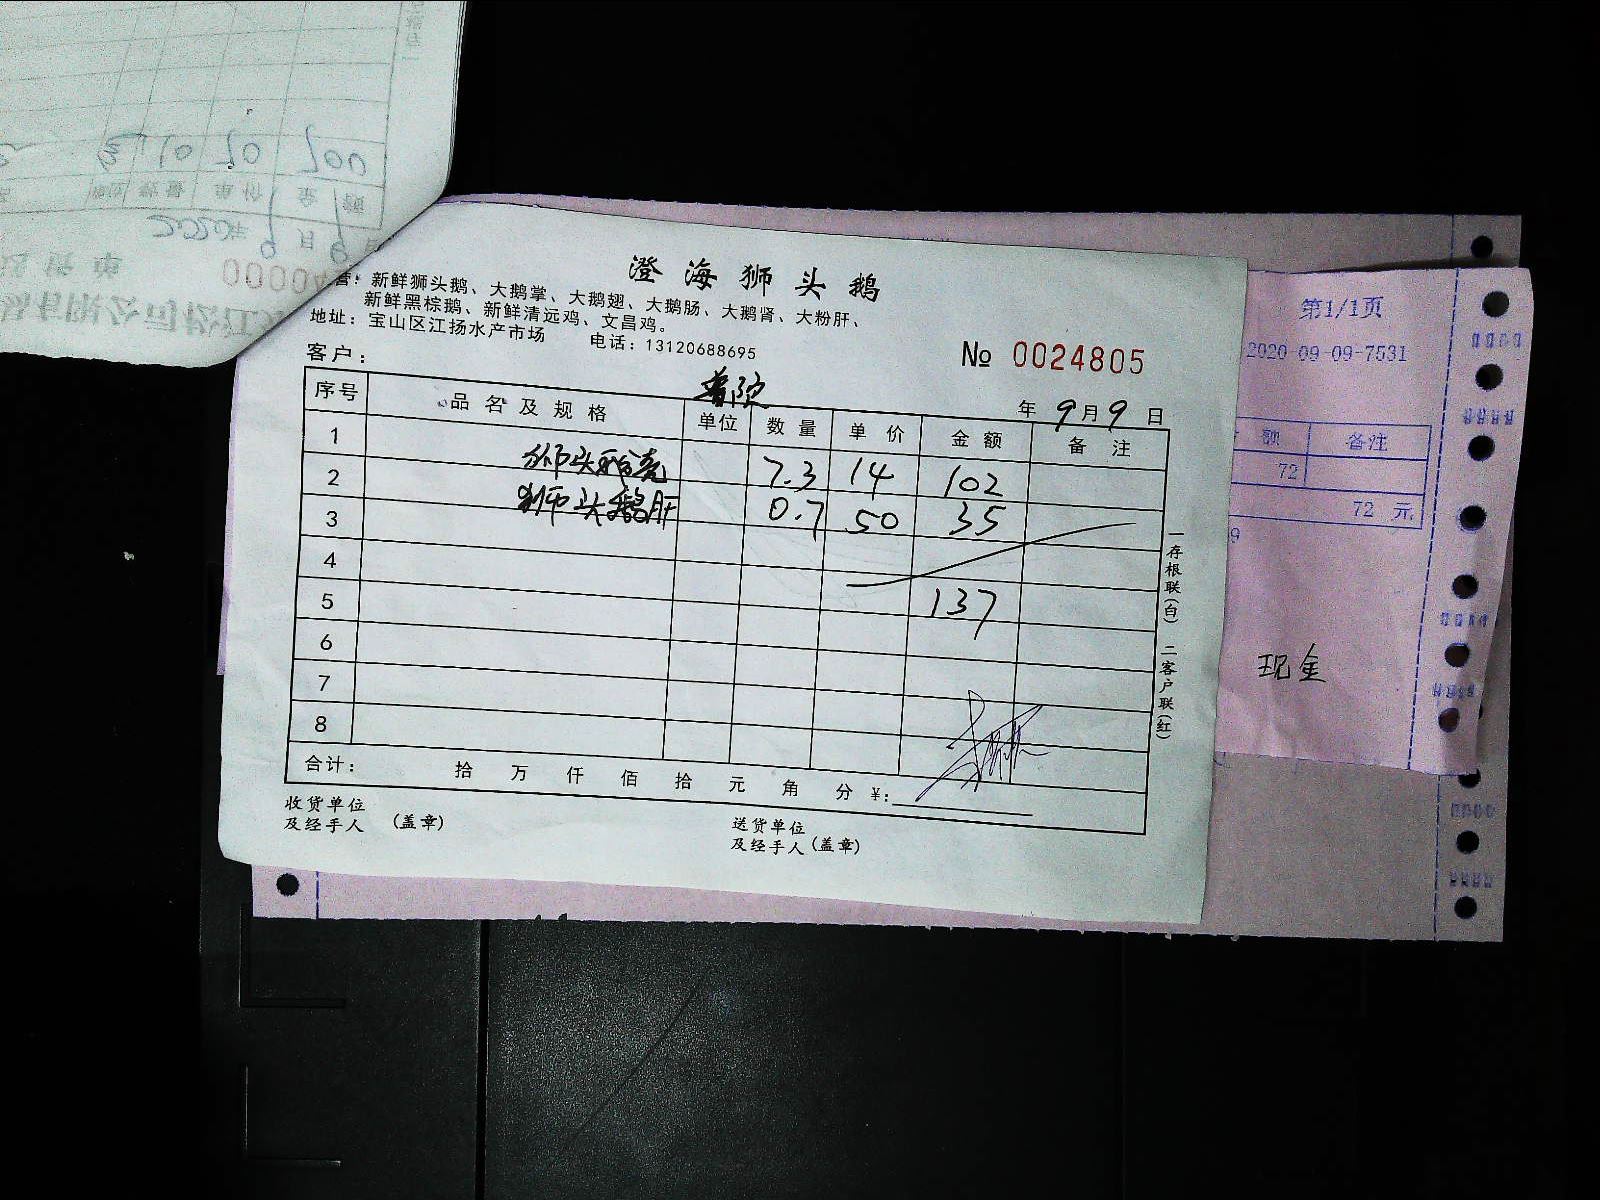 澄海狮头鹅
营：新鲜狮头鹅、大鹅掌、大鹅翅、大鹅肠、大鹅肾、大粉肝、
新鲜黑棕鹅、新鲜清远鸡、文昌鸡。
地址：宝山区江扬水产市场 电话：13120688695
客户：
№ 0024805
年 9月9日
序号 品名及规格 单位 数量 单价 金额 备注
1 狮头鹅 7.3 14 102
2 狮头鹅肝 0.7 50 35
3
4
5 137
6
7
8
合计： 拾 万 仟 佰 拾 元 角 分 ¥：
收货单位
及经手人 (盖章)
送货单位
及经手人(盖章)
一存根联(白) 二客户联(红)
第1/1页
2020-09-09-7531
额 备注
72
72 元
9
现金